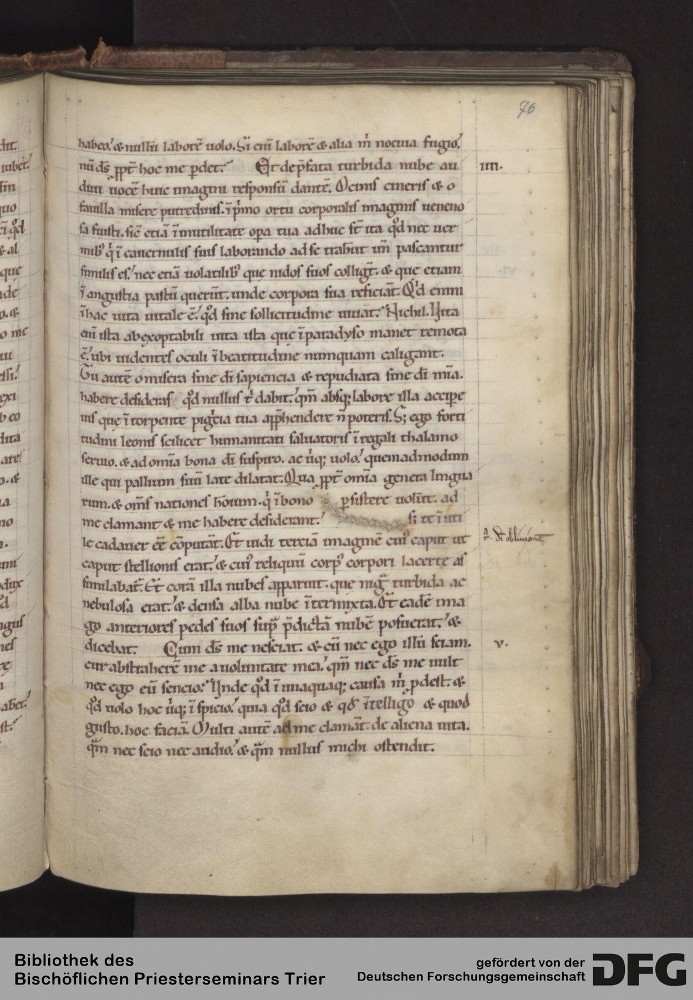 76
habeo. & nullū laborē uolo. Si eni laborē & alia m̄ nociua fugio.
nū ds̄ ꝓpt̄ hoc me ꝑdet. Et de p̄fata turbida nube au
diui uocē huic imagini responsū dantē. O cinis cineris & o
fauilla misere putredinis. ī p̄mo ortu corporalis imaginis ueneno
sa fuisti. sic etiā ī inutilitate opa tua adhuc st̄ ita qd̄ nec uer
mib; q̄ ī cauernulis suis laborando ad se trahūt un̄ pascantur
similis es. nec etiā uolatilib; que nidos suos colligt̄. & que etiam
ī angustia pastū querūt. unde corpora sua reficiāt. Qd̄ enim
ī hac uita uitale ē. qd̄ sine sollicitudine uiuat. Nichil. Uita
eni ista ab exoptabili uita ista que ī paradyso manet remota
ē. ubi uidentes oculi ī beatitudine numquam caligant.
Tu autē o misera sine di sapiencia & repudiata sine di mīa.
habere desideras qd̄ nullus t̄ dabit. qm̄ absq; labore illa accipe
uis que ī torpente pigcia tua app̄hendere n̄ poteris. S; ego forti
tudini leonis scilicet humanitati saluatoris ī regali thalamo
seruio. & ad omīa bona di suspiro. ac uq; uolo. quemadmodum
ille qui pallium suū late dilatat. Qua ꝓpt̄ omīa genera lingua
rum. & om̄s nationes hoīum. q̄ ī bono ꝑsistere uolūt. ad
me clamant & me habere desiderant. s; te ī uti
le cadauer eē cōputāt. Et uidi terciā imaginē cui; caput ut
caput stellionis erat. & cui; reliquū corp; corpori lacerte as
similabat̄. Et corā illa nubes apparuit. que nigra turbida ac
nebulosa erat. & densa alba nube ītermixta. Et eadē ima
go anteriores pedes suos sup̄ p̄dictā nubē posuerat. &
dicebat. Cum ds̄ me nesciat. & eū nec ego illū sciam.
cur abstraherē me a uoluntate mea. qm̄ nec ds̄ me uult
nec ego eū sencio. Unde qd̄ ī unaquaq; causa m̄ ꝓdest. &
qd̄ uolo hoc uq; īspicio. quia qd̄ scio & qd̄ ītelligo & quod
gusto. hoc faciā. Multi autē ad me clamāt. de aliena uita.
qm̄ nec scio nec audio. & qm̄ nullus michi ostendit.
IIII.
V.
Bibliothek des
Bischöflichen Priesterseminars Trier
gefördert von der
Deutschen Forschungsgemeinschaft
DFG